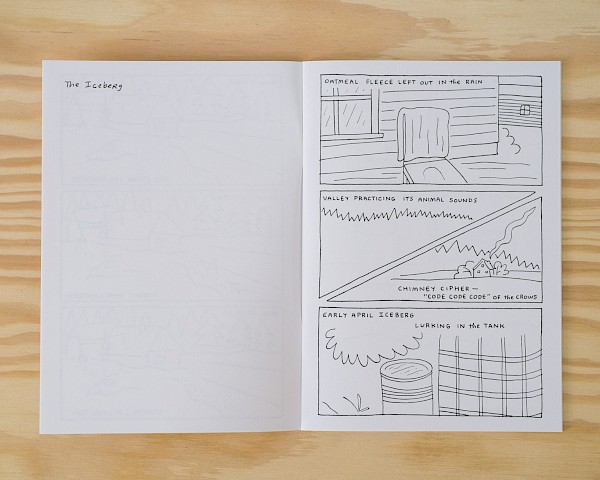 The Iceberg
OATMEAL FLEECE LEFT OUT IN the RAIN
VALLEY PRACTICING ITS ANIMAL SOUNDS
CHIMNEY CIPHER—
"CODE CODE CODE" OF the CROWS
EARLY APRIL ICEBERG
LURKING IN the TANK